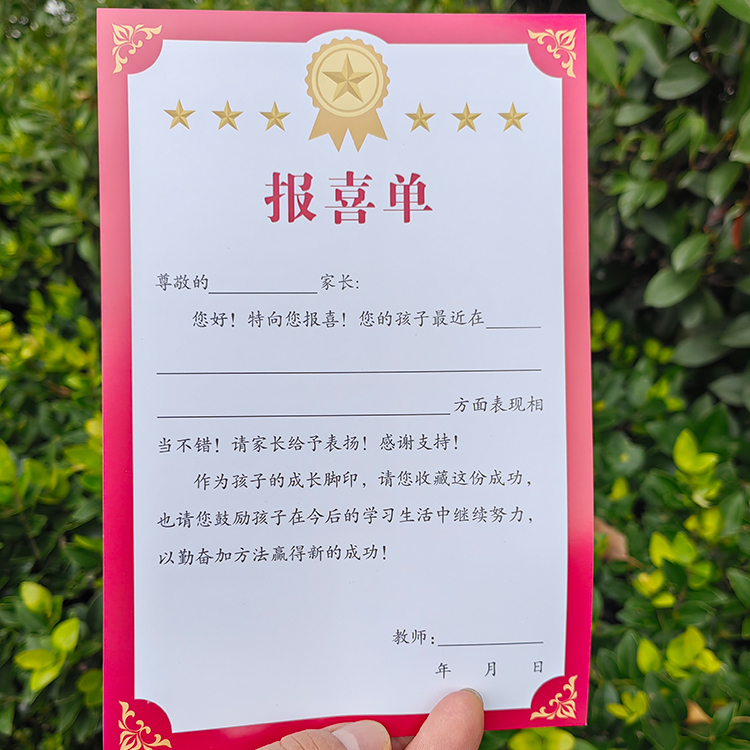 报喜单
尊敬的____________家长:
您好！特向您报喜！您的孩子最近在______
__________________________________________
________________________________方面表现相
当不错！请家长给予表扬！感谢支持！
作为孩子的成长脚印，请您收藏这份成功，
也请您鼓励孩子在今后的学习生活中继续努力，
以勤奋加方法赢得新的成功！
教师:____________
年 月 日